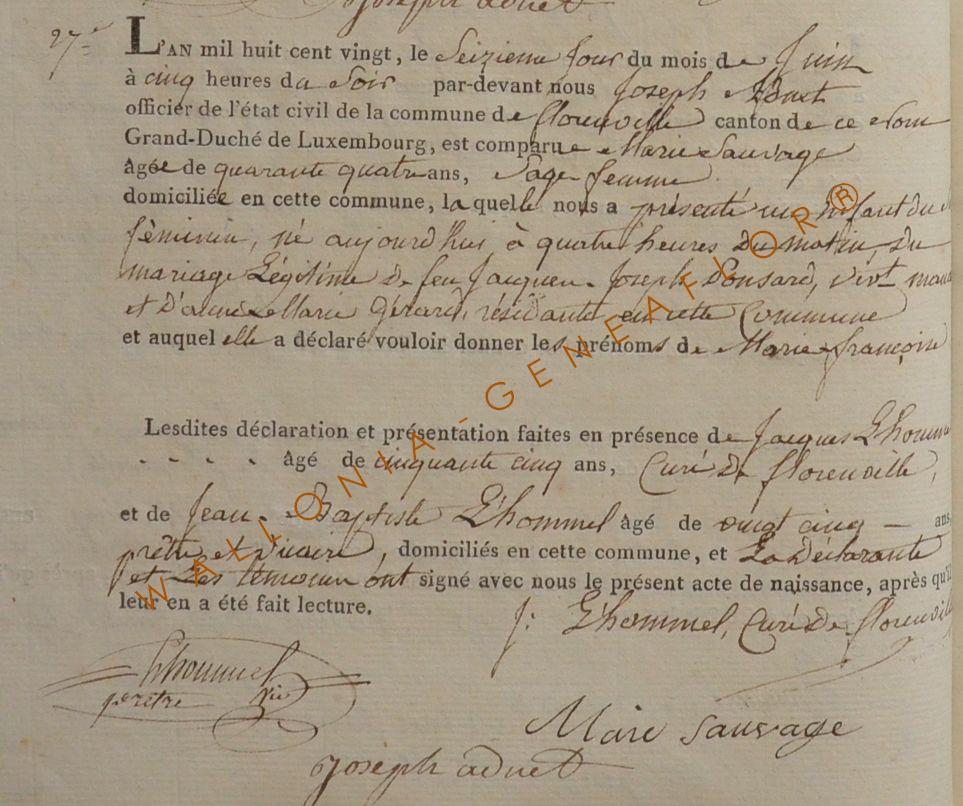 Joseph adnet
27e
L'AN mil huit cent vingt, le Seizieme Jour du mois de Juin
à cinq heures du Soir par-devant nous Joseph Adnet
officier de l'état civil de la commune de florenville canton de ce nom
Grand-Duché de Luxembourg, est comparue Marie Sauvage
âgée de quarante quatre ans, Sage femme
domiciliée en cette commune, laquelle nous a présenté un Enfant du
féminin, né aujourd'hui à quatre heures du matin, du
mariage Légitime de feu Jacques Joseph Ponsard, vivt
et D'anne Marie Gérard, résidante en cette Commune
et auquel elle a déclaré vouloir donner les prénoms de Marie françoise
Lesdites déclaration et présentation faites en présence de Jacques Lhommel
- - - - âgé de cinquante cinq ans, Curé de florenville,
et de Jean-Baptiste Lhommel âgé de vingt cinq — ans,
prêtre et vicaire, domiciliés en cette commune, et La Déclarante
et Les témoins ont signé avec nous le présent acte de naissance, après qu'il
leur en a été fait lecture.
J: Lhommel, Curé de florenville
Lhommel
pretre vic
Marie sauvage
Joseph adnet
WALLONIA-GENEAFLOR®